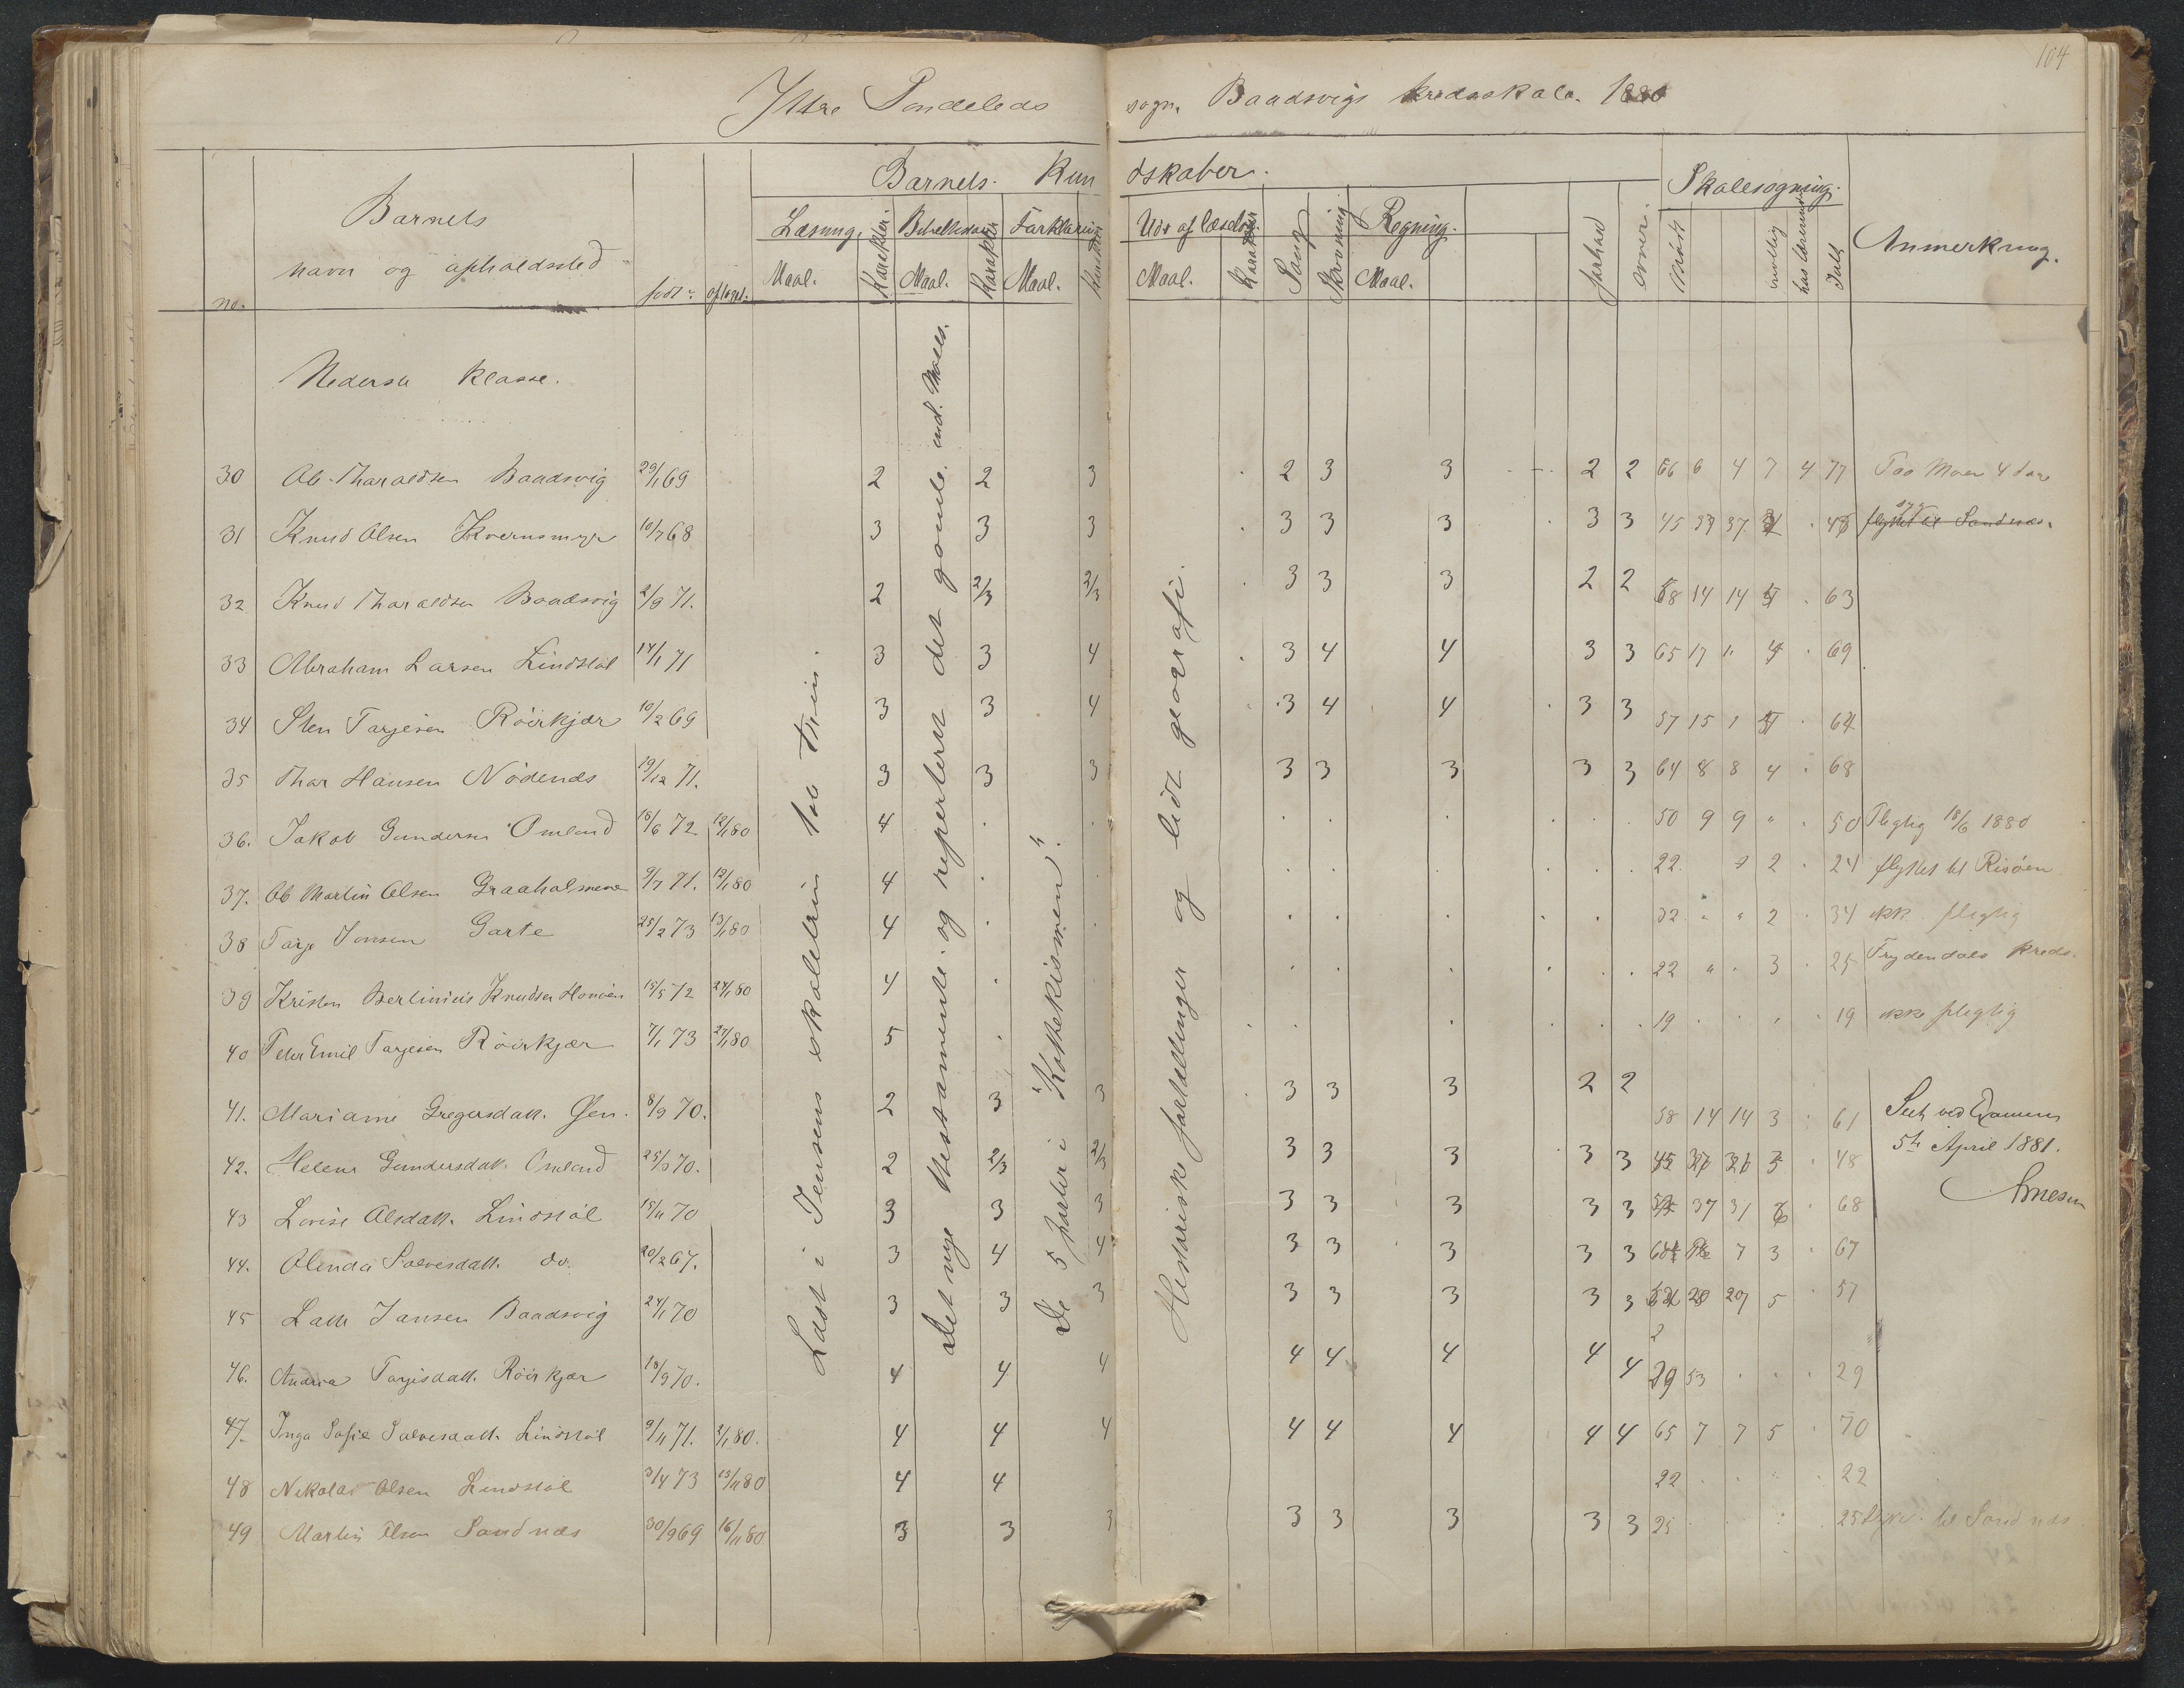 104
Ytdre Sondeleds sogn. Baadsvigs kredsskole. 1880
Barnets Kundskaber. Skolesøgning.
no. Barnets navn og opholdssted født optaget. Læsning. Maal. Karakter. Bibelhistorie Maal. Karakter Forklaring Maal. Karakter Udv. af læsebog. Maal. Karakter Sang Skrivning Regning. Maal. forhold evner. mødt lovlig Ialt Anmerkning.
Nederste klasse.
Læst i Jensens skolelæsebog 1ste trin.
Det nye testamente og reperteret det gamle ind. Moses.
De 5 parter i "Kattekismen".
Historiske fortællinger og lidt geografi.
30 Ole Tharaldsen Baadsvig 29/1 69 2 2 3 2 3 3 2 2 66 6 4 7 4 77 Paa Moen 4 dage
31 Knud Olsen Kvernsmyr 10/7 68 3 3 3 3 3 3 3 3 45 37 37 48 flyttet til Sandnæs.
32 Knud Tharaldsen Baadsvig 2/9 71. 2 2/3 2/3 3 3 3 2 2 58 14 14 63
33 Abraham Larsen Lindstøl 14/1 71 3 3 4 3 4 4 3 3 65 17 1 4 69
34 Sten Tarjesen Röirkjær 10/2 69 3 3 4 3 4 4 3 3 57 15 1 64
35 Thor Hansen Nødenes 19/12 71. 3 3 3 3 3 3 3 3 64 8 8 4 68
36. Jakob Gundersen Omland 18/6 72 12/1 80 4 50 9 9 " 50 Pligtig 18/6 1880
37. Ole Martin Olsen Graaholmene 9/7 71. 12/1 80 4 22. 2 2 24 flyttet til Risöen
38 Tarje Jonsen Garte 25/2 73 13/1 80 4 32 " " 2 34 ikke pligtig
39 Kristen Berlinius Knudsen 15/5 72 24/1 80 4 22 " 3 25 Frydendals kreds.
40 Peter Emil Tarjesen Röirkjær 7/1 73 27/1 80 5 19 19 ikke pligtig
41. Mariane Gregersdatt. Øen. 8/9 70. 2 3 3 3 3 3 2 2 58 14 14 3 61
42. Helene Gundersdatt. Omland 25/3 70. 2 2/3 2/3 3 3 3 3 3 45 48
43 Lovise Olsdatt. Lindstøl 15/11 70 3 3 3 3 3 3 3 3 37 31 68
44. Olinda Salvesdatt. do. 20/2 67. 3 4 4 3 3 3 3 3 7 3 67
45 Jansen Baadsvig 24/1 70 3 3 3 3 3 3 3 3 20 5 57
46. Andrea Tarjesdatt. Röirkjær 18/9 70. 4 4 4 4 4 4 4 4 29 53 29
47. Inga Sofie Salvesdatt. Lindstøl 9/11 71. 2/1 80. 4 4 4 4 4 4 4 4 65 7 7 5 70
48 Nikolai Olsen Lindstøl 3/4 73 15/11 80 4 4 22 22
49 Martin Olsen Sandnæs 30/9 69 16/11 80 3 3 3 3 3 3 3 3 25 25 til Sandnæs
Seet ved Examen
5te April 1881.